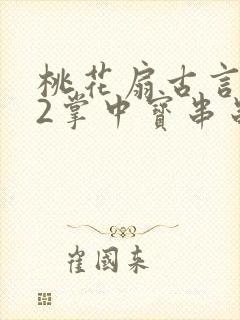 桃花扇古言
2掌中寶串
崔國來